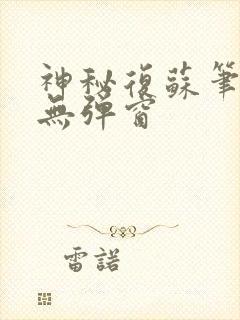 神秘復蘇筆
無彈窗
雷諾